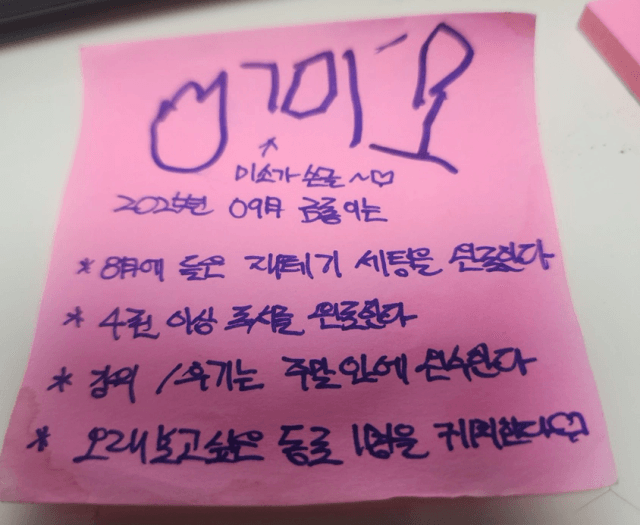 미소가 손글 ~♡
2025년 09월 금룡이는
* 8월에 들은 재테기 세팅을 완료한다
* 4권 이상 독서를 완료한다
* 강의 / 후기는 주말안에 완수한다
* 오래보고싶은 동료 1명을 케미한다♡